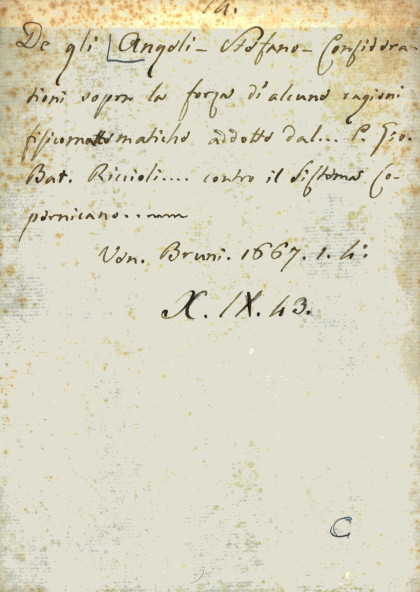 14.
De gli Angeli - Stefano - Considera-
tioni sopra la forza di alcune ragioni
fisicomattematiche addotte dal... P. Gio.
Bat. Riccioli.... contro il sistema Co-
pernicano...
Ven. Bruni. 1667. 1. 4:
X. IX. 43.
C